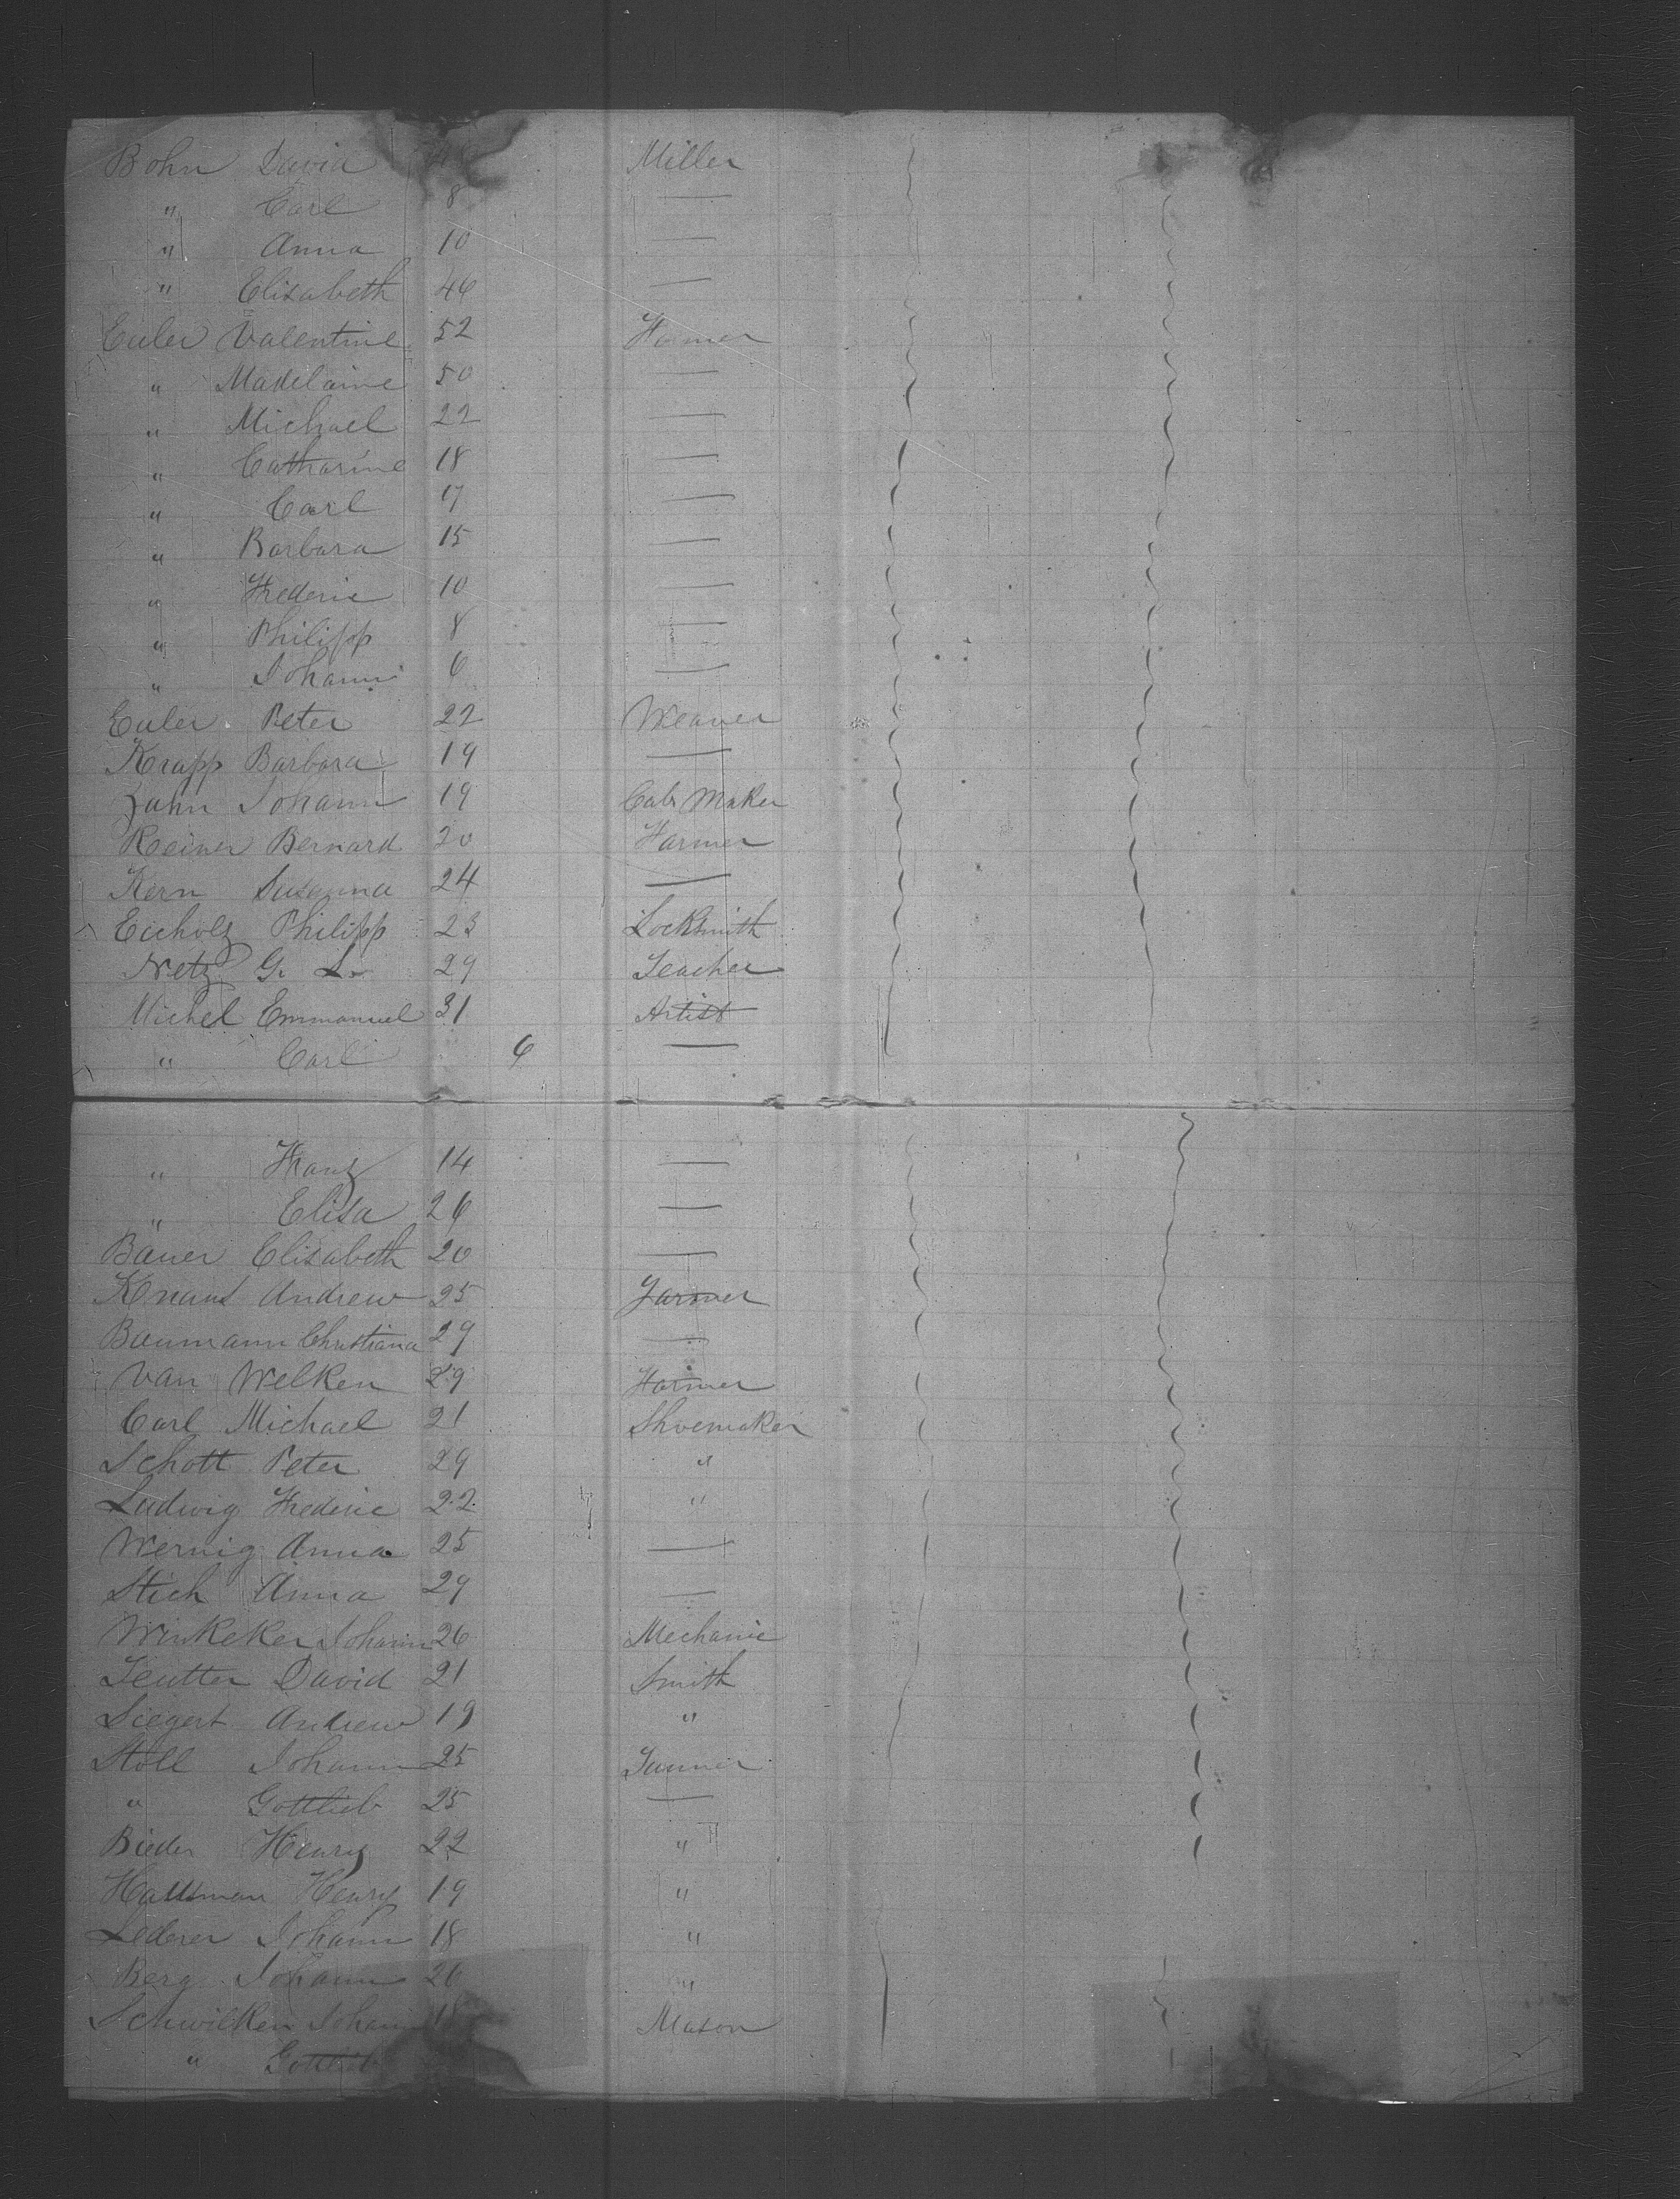 Bohn David 48 Miller
" Carl 8 —
" Anna 10 —
" Elisabeth 46 —
Euler Valentine 52 Farmer
" Madelaine 50 —
" Michael 22 —
" Catharine 18 —
" Carl 17 —
" Barbara 15 —
" Frederic 10 —
" Philipp 8 —
" Johann 6 —
Euler Peter 22 Weaver
Krapp Barbara 19 —
Zahn Johann 19 Cab Maker
Reiner Bernard 20 Farmer
Kern Susanna 24 —
Eicholz Philipp 23 Locksmith
Netz G. L. 29 Teacher
Michel Emmanuel 31 Artist
" Carl 6 —
" Franz 14 —
" Elisa 26 —
Bauer Elisabeth 20 —
Knaus Andrew 25 Farmer
Baumann Christiana 29 —
Van Welken 29 Farmer
Carl Michael 21 Shoemaker
Schott Peter 29 "
Ludwig Frederic 22 "
Wernig Anna 25 —
Stich Anna 29 —
Winkeker Johann 26 Mechanic
Teutter David 21 Smith
Siegert Andrew 19 "
Stoll Johann 25 Tanner
" Gottlieb 25 —
Bieder Henry 22 "
Hausman Henry 19 "
Lederer Johann 18 "
Berg Johann 20 "
Schwilken Johann 18 Mason
" Gottlieb